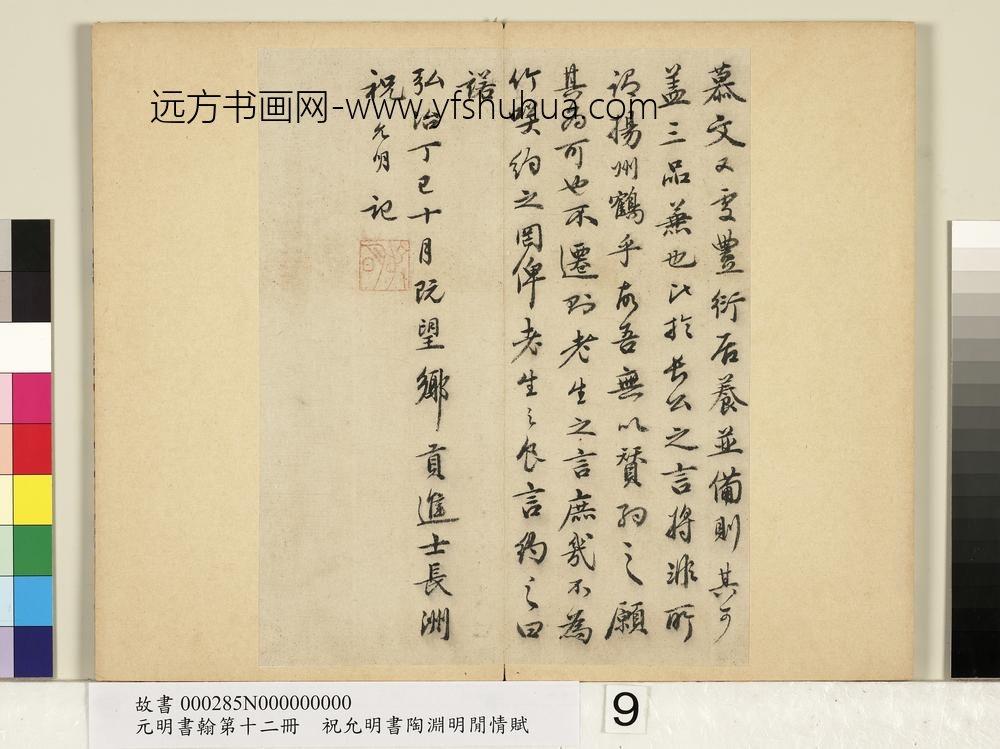 慕文又雯豐衍居養並備則其可
盖三品兼也比於長公之言將非所
謂揚州鶴乎故吾無以贊約之願
其為可也不遷則老生之言庶幾不為
竹嗅約之罔俾老生之食言約之曰
諾
弘治丁巳十月既望鄉貢進士長洲
祝允明記
远方书画网-www.yfshuhua.com
故書 000285N000000000
元明書翰第十二冊 祝允明書陶淵明閒情賦
9